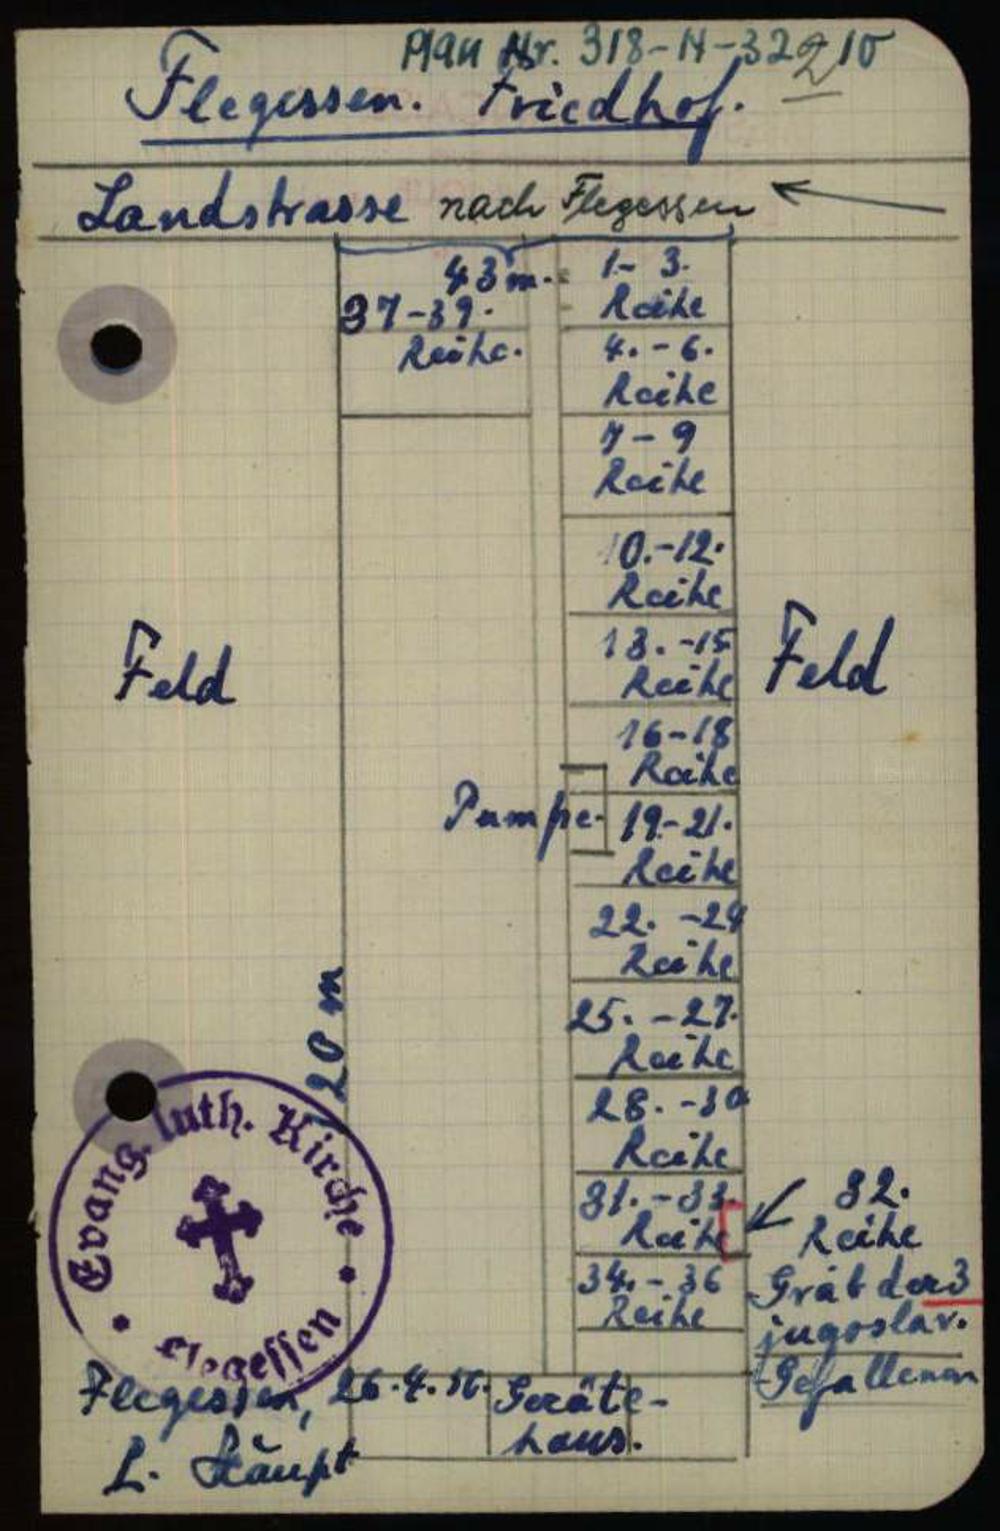 Plan Nr. 318-H-32210
2
Flegessen. Friedhof.
Landstrasse nach Flegessen
43 m.
37-39.
Reihe.
1- 3.
Reihe
4. - 6.
Reihe
7 - 9
Reihe
10.-12.
Reihe
13. -15
Reihe
16-18
Reihe
Feld
Feld
Pumpe
19.-21.
Reihe
22. -24
Reihe
25. -27.
Reihe
28. -30
Reihe
31. -33.
Reihe
34. - 36
Reihe
120 m
32.
Reihe
Grab der 3
jugoslav.
Gefallenen
Evang. luth. Kirche
Flegessen
Flegessen, 26.4.56.
Geräte-
haus.